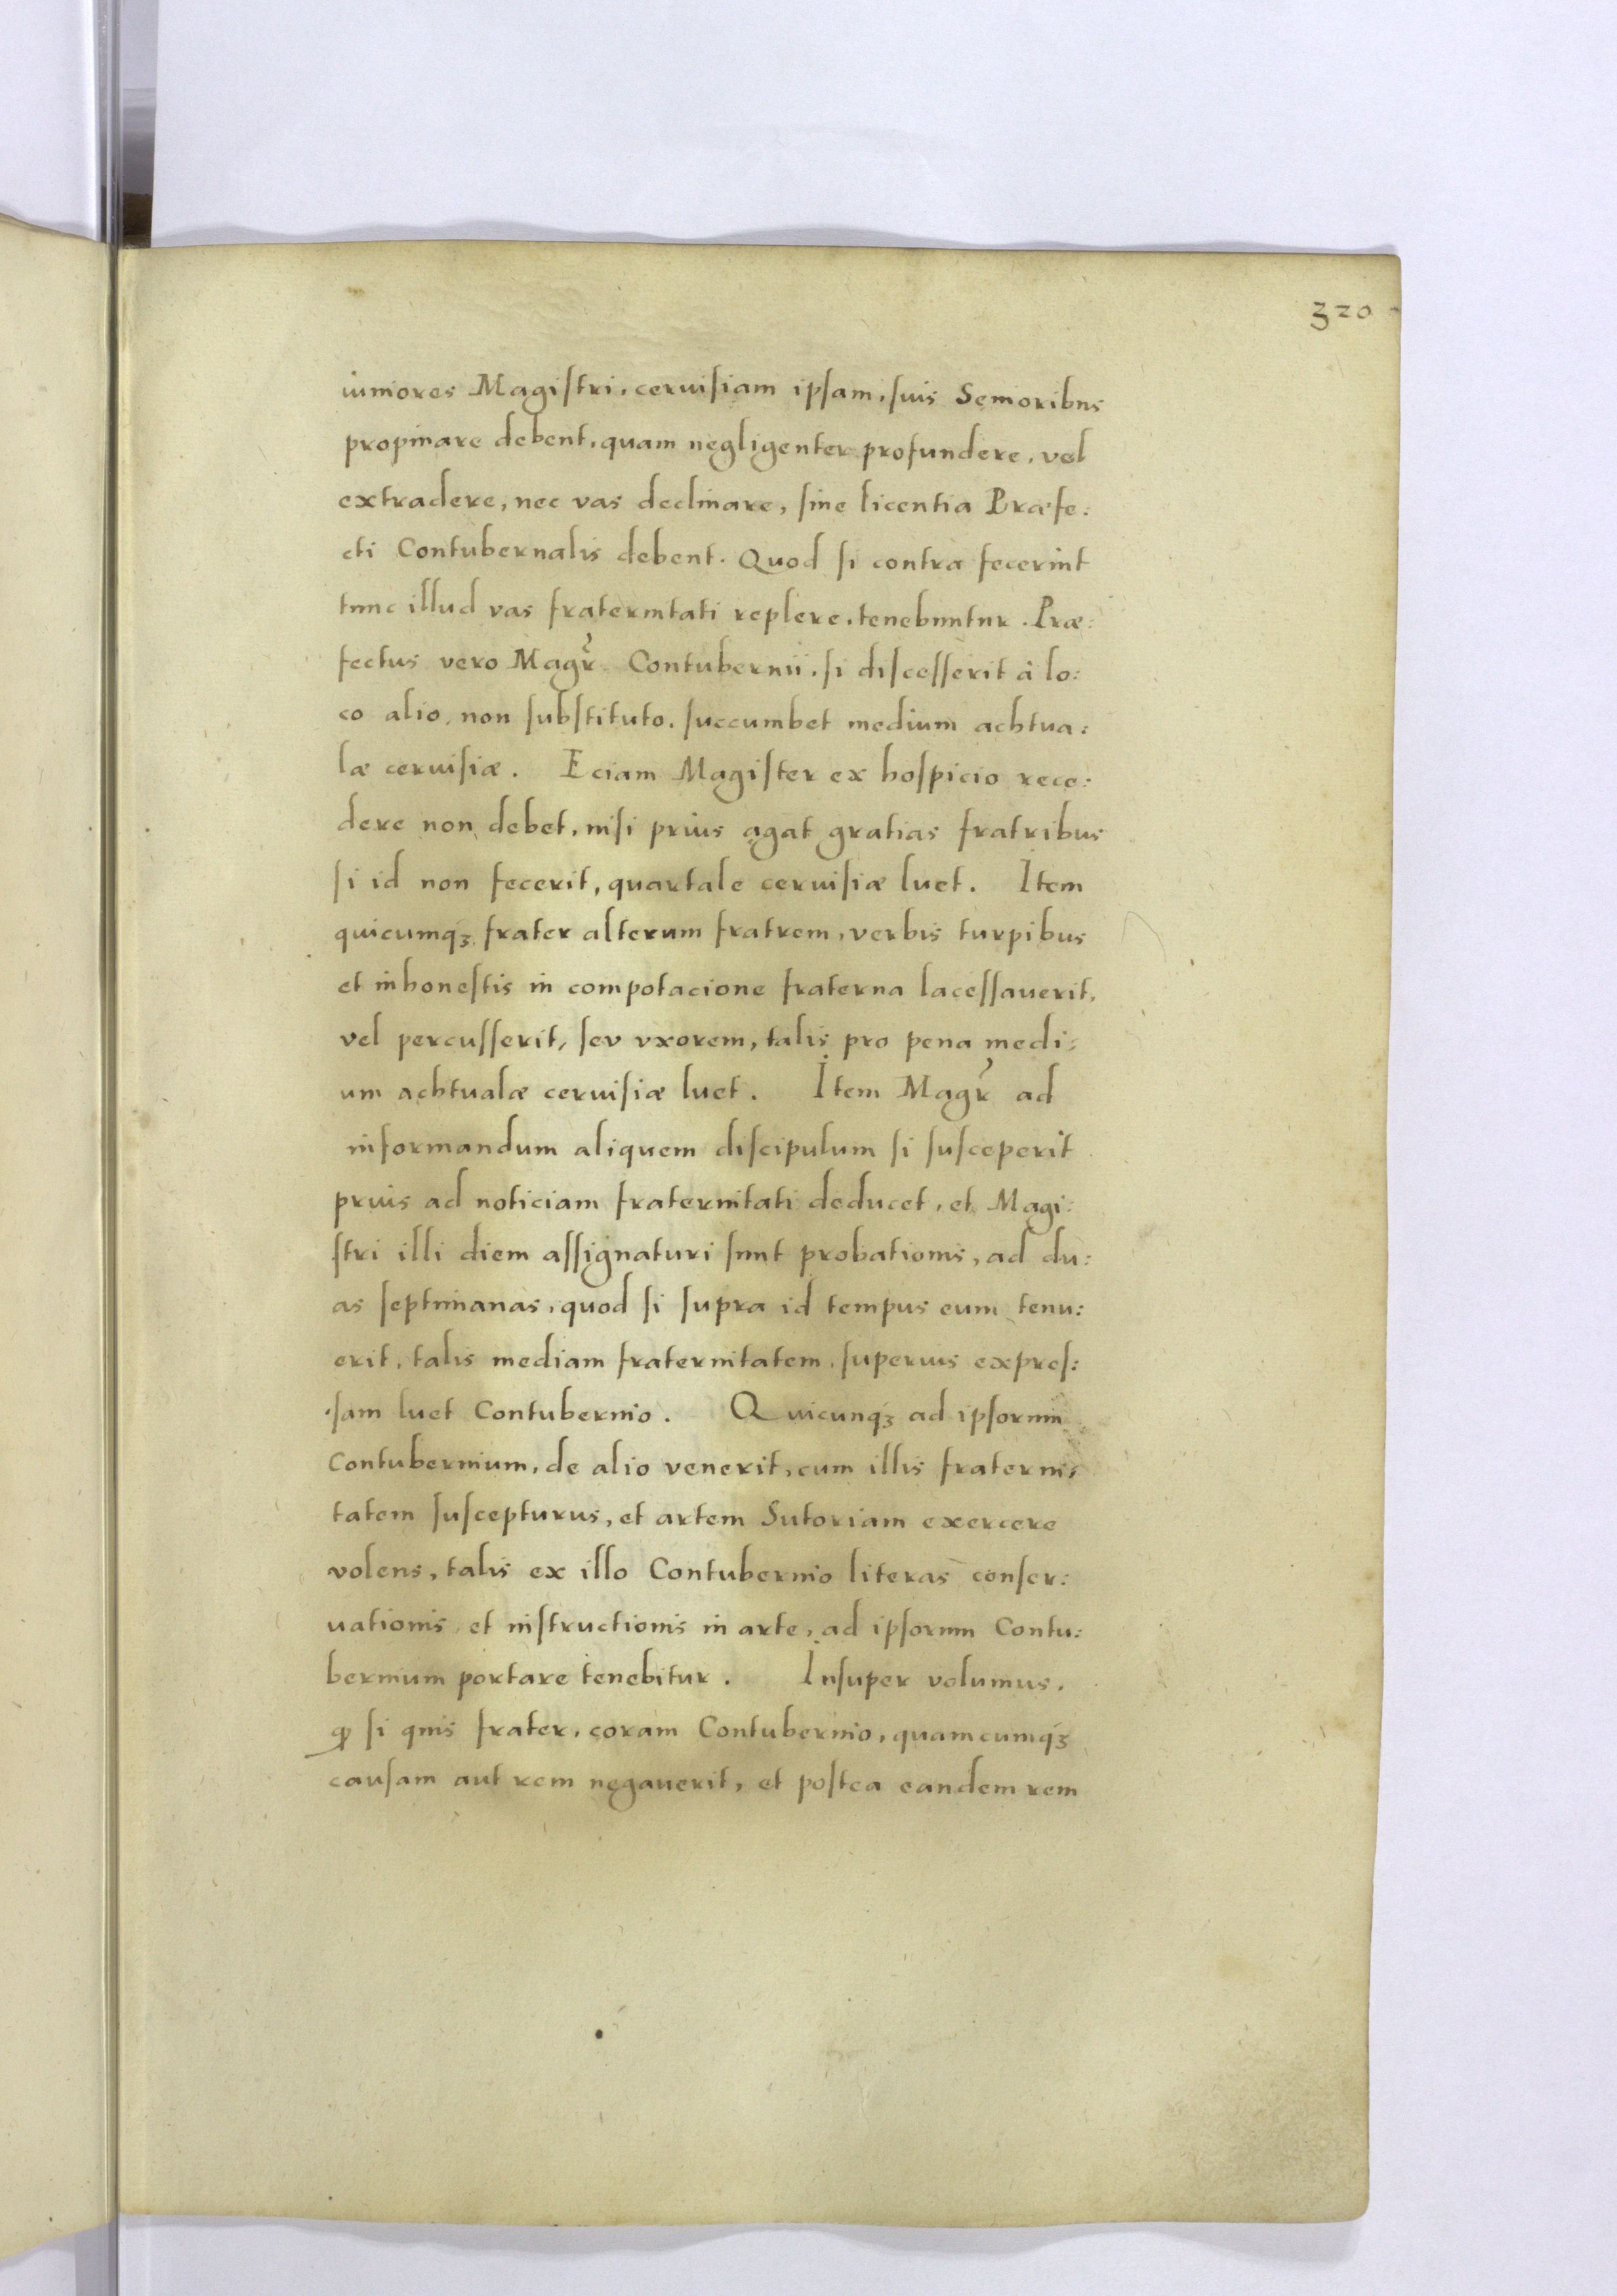 320
iuniores Magistri, ceruisiam ipsam, suis Senioribus
propinare debent, quam negligenter profundere, vel
extradere, nec vas declinare, sine licentia Præfe:
cti Contubernalis debent. Quod si contra fecerint
tunc illud vas fraternitati replere, tenebuntur. Præ:
fectus vero Magr̃ Contubernii, si discesserit à lo:
co alio, non substituto, succumbet medium achtua:
læ ceruisiæ. Eciam Magister ex hospicio rece:
dere non debet, nisi prius agat gratias fratribus
si id non fecerit, quartale ceruisiæ luet. Item
quicumqꝫ frater alterum fratrem, verbis turpibus
et inhonestis in compotacione fraterna lacessauerit,
vel percusserit, sev vxorem, talis pro pena medi:
um achtualæ ceruisiæ luet. Item Magr̃ ad
informandum aliquem discipulum si susceperit
prius ad noticiam fraternitati deducet, et Magi:
stri illi diem assignaturi sunt probationis, ad du:
as septimanas, quod si supra id tempus eum tenu:
erit, talis mediam fraternitatem, superius expres:
sam luet Contubernio. Quicunqꝫ ad ipsorum
Contubernium, de alio venerit, cum illis fraterni:
tatem suscepturus, et artem Sutoriam exercere
volens, talis ex illo Contubernio literas conser:
uationis, et instructionis in arte, ad ipsorum Contu:
bernium portare tenebitur. Insuper volumus,
ꝙ si quis frater, coram Contubernio, quamcumqꝫ
causam aut rem negauerit, et postea eandem rem